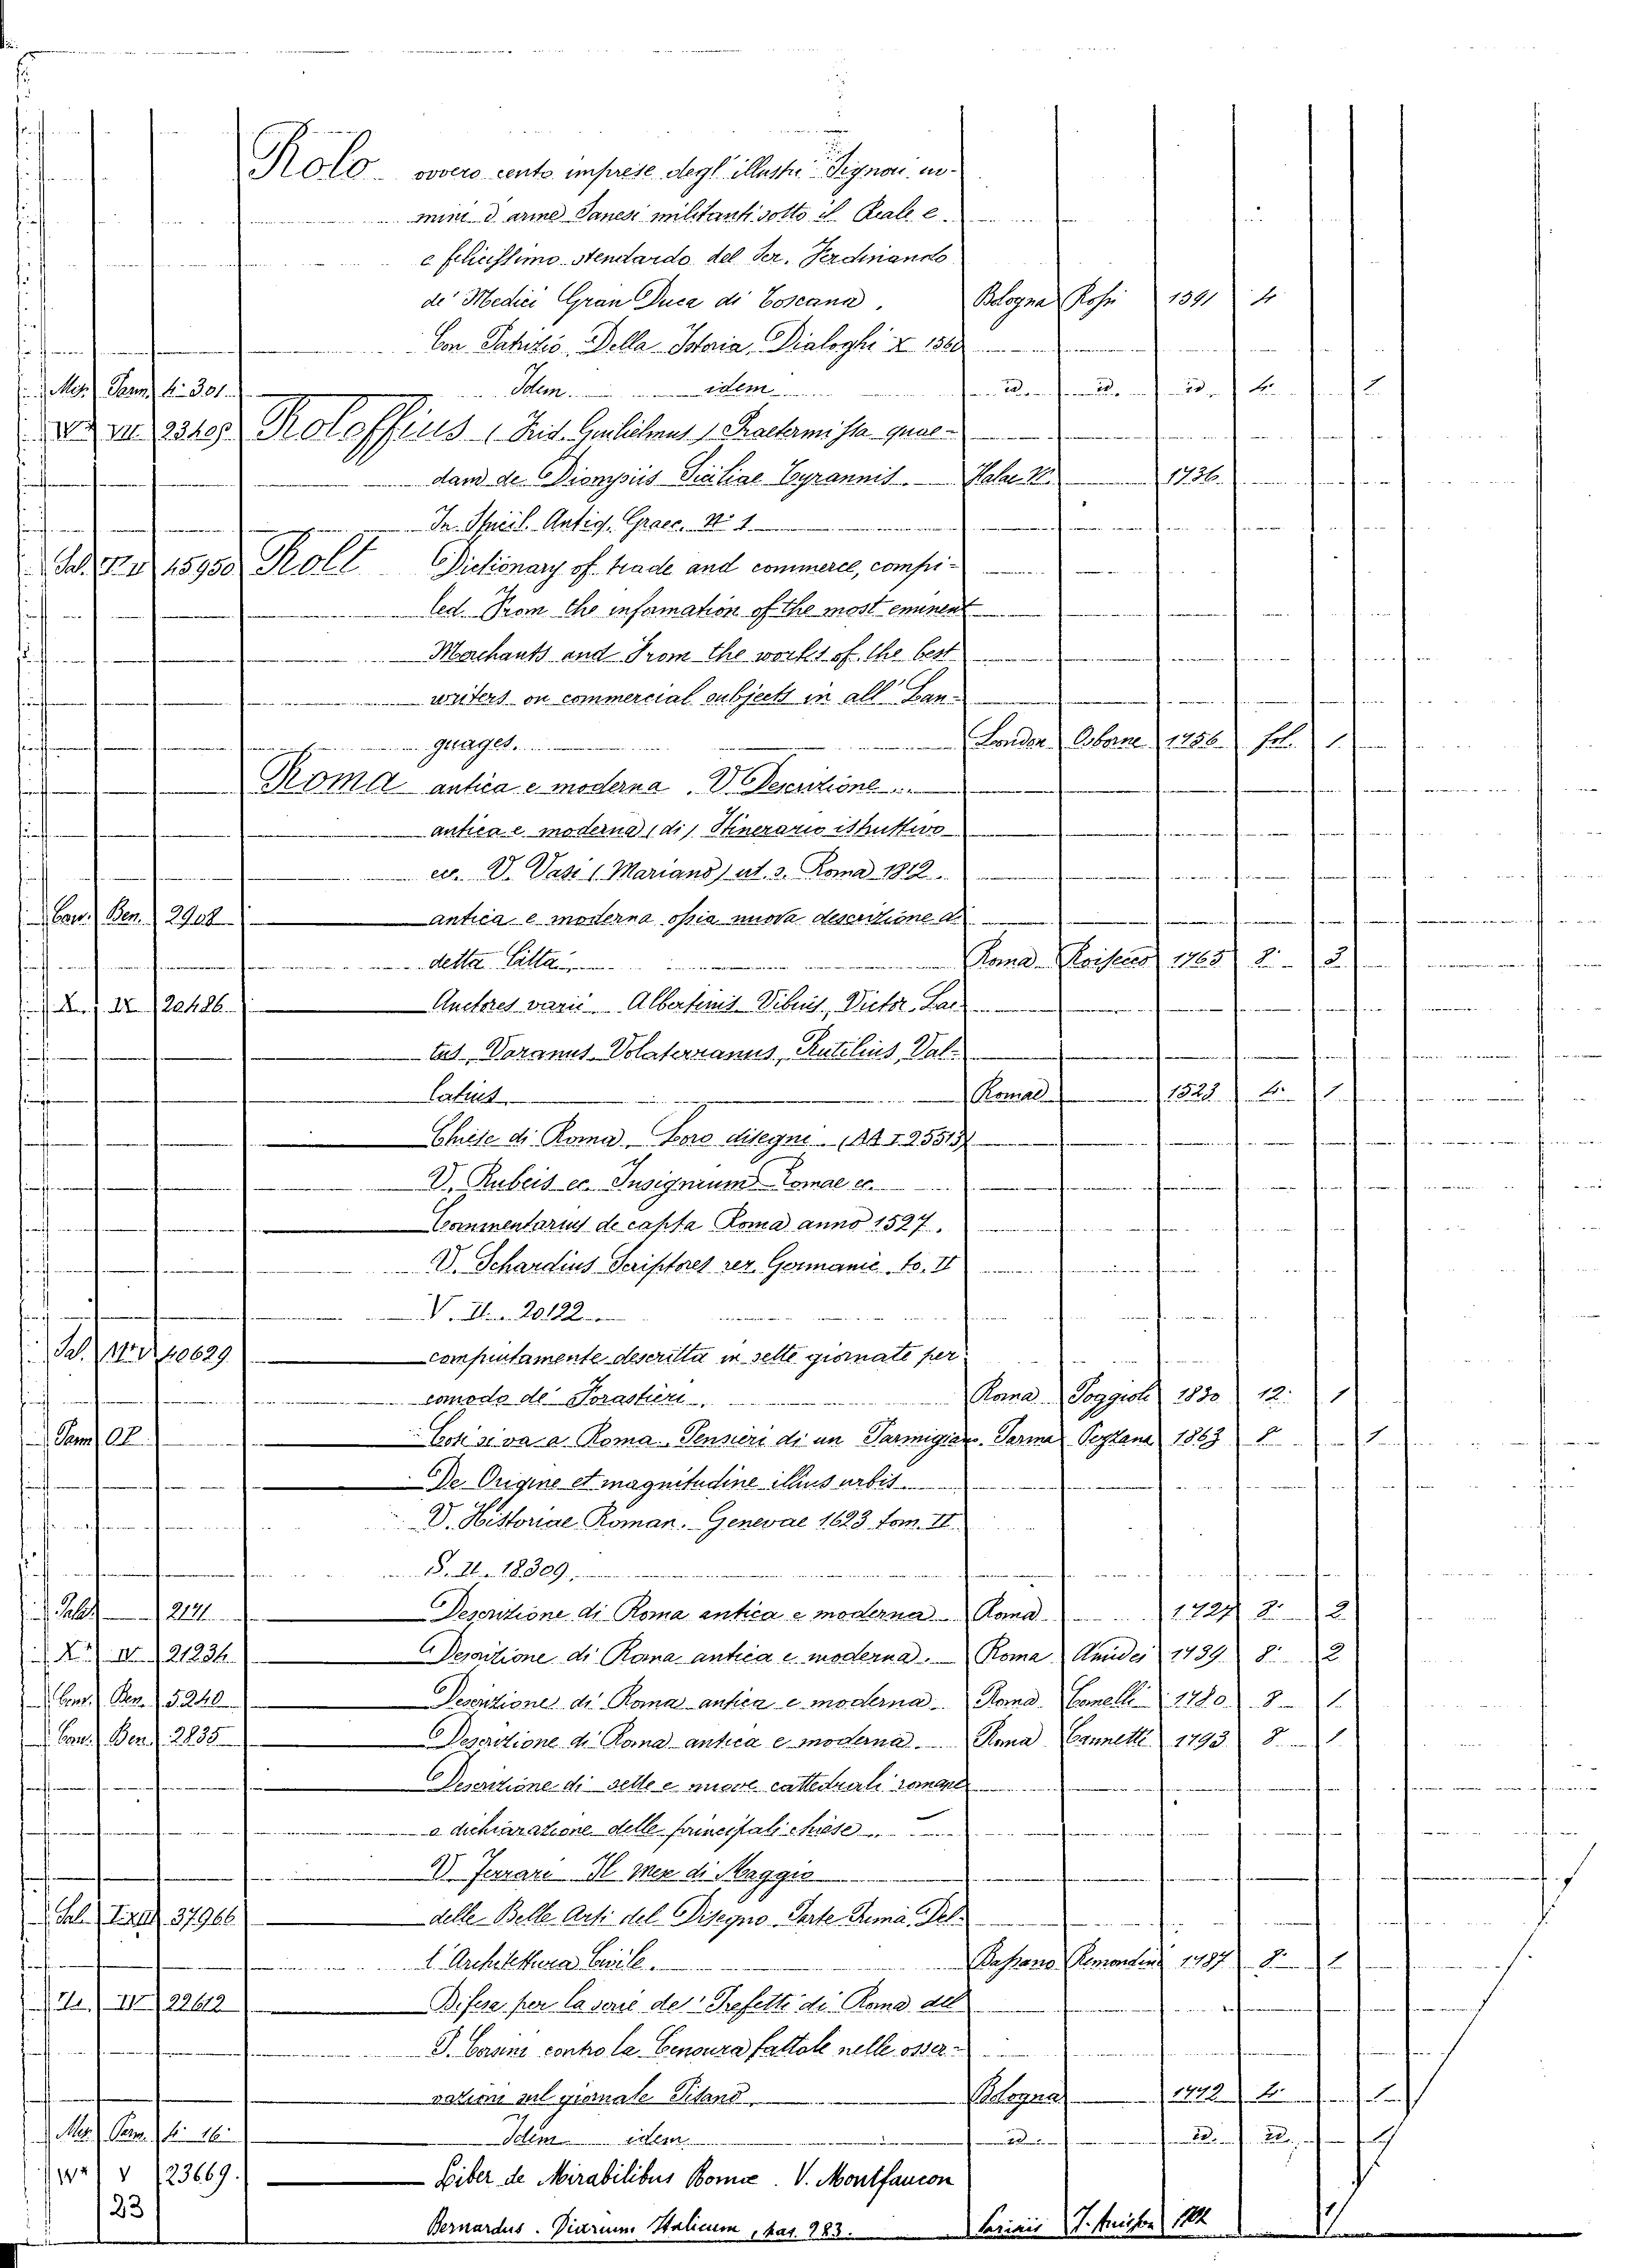 Rolo ovvero cento imprese degl' illustri Signori uo-
mini d'arme Sanesi militanti sotto il Reale e
e felicissimo stendardo del Ser. Ferdinando
de' Medici Gran Duca di Toscana. Bologna Rossi 1591 4
Con Patrizio, Della Istoria, Dialoghi X 1560
Mez. Parm. 4. 301 Idem idem id. id. id. 4. 1
Roloffius (Frid. Guilielmus) Praetermissa quae-
dam de Dionysiis Siciliae Tyrannis. Halae V. 1736.
In Speicil. Antiq. Graec. N. 1
Sal. 15950 Rolt Dictionary of trade and commerce, compi-
led From the infamation of the most eminent
Merchants and From the works of the best
writers on commercial subjects in all Lan-
guages. London Osborne 1756 fol. 1
Roma antica e moderna. V. Descrizione ...
antica e moderna (di) Itinerario istruttivo
ec. V. Vasi (Mariano) ed. 3. Roma 1812.
Cow. Ben. 2908 antica e moderna ossia nuova descrizione di
detta Citta Roma Roisecco 1765 8. 3
X. IX 20486 Auctores varii. Albertinis Vibius, Victor, Lae-
tus, Varanus Volaterranus, Rutilius, Val-
latius Romae 1523 4. 1
Chiese di Roma, Loro disegni. (AA I 25513)
V. Rubeis ec. Insignium Romae ec.
Commentarius de capta Roma anno 1527.
V. Schardius Scriptores rer. Germanic. to. II
V. II. 20122
Sal. 40629 compiutamente descritta in sette giornate per
comodo de' Forastieri. Roma Poggioli 1830 12. 1
Parm. Così si va a Roma. Pensieri di un Parmigiano. Parma 1863 8 1
De Origine et magnitudine illius urbis.
V. Historiae Roman. Genevae 1623 tom. II.
S. II. 18309.
Palat. 2171 Descrizione di Roma antica e moderna Roma 1727 8. 2
IV 21234 Descrizione di Roma antica e moderna. Roma Amidei 1739 8. 2
Cow. Ben. 5240 Descrizione di Roma antica e moderna. Roma 1780 8 1.
Cow. Ben. 2835 Descrizione di Roma antica e moderna. Roma Cannetti 1793 8. 1
Descrizione di sette e nuove cattedrali romane
e dichiarazione delle principali chiese
V. Ferrari Il Mese di Maggio
Sal. 37966 delle Belle Arti del Disegno Parte Prima Del-
l'Architettura Civile. Bassano Remondini 1787 8. 1
IV 22612 Difesa per la serie de' Prefetti di Roma del
P. Corsini contro la Censura fattale nelle osser-
vazioni sul giornale Pisano. Bologna 1772 4. 1
Mez. Parm. 4. 16. Idem idem id. id. id. 1
V 23669. Liber de Mirabilibus Romæ. V. Montfaucon
23 Bernardus. Diarium Italicum, pag. 283. Parisiis J. Anisson 1702 1